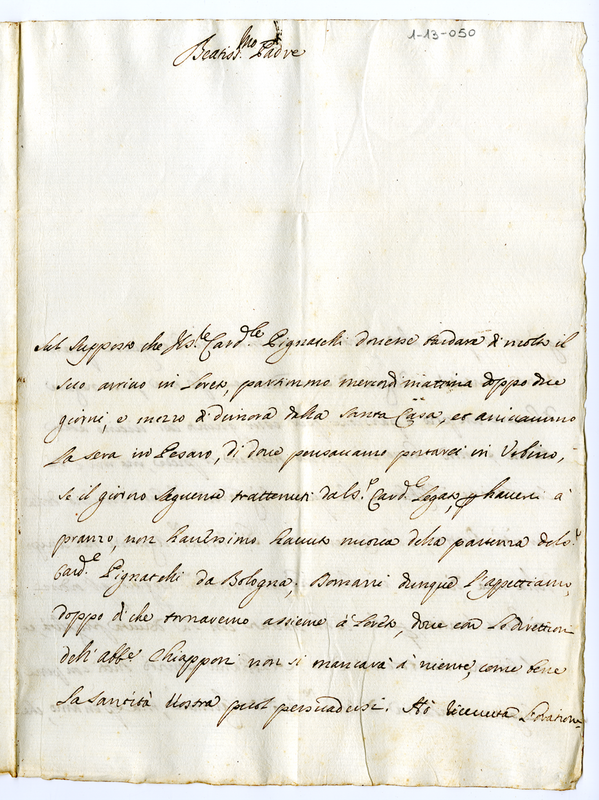 1-13-050
Beatiss.mo Padre
Sul supposto che il S.re Card.le Pignatelli dovesse tardare di molto il
suo arrivo in Loreto, partimmo mercordì mattina doppo due
giorni, e mezzo di dimora dalla Santa Casa, et arrivammo
la sera in Pesaro, di dove pensavamo portarci in Urbino,
se il giorno seguente trattenuti dal S.r Card.e Legato, haverci à
pranzo, non havessimo havuto nuova della partenza del S.r
Card.e Pignatelli da Bologna; Domani dunque l'aspettiamo,
doppo di che tornaremo assieme à Loreto, dove con le direttioni
dell'abbe Chiapponi non si mancarà à niente, come bene
la Santità Vostra puol persuadersi. Hò ricevuta